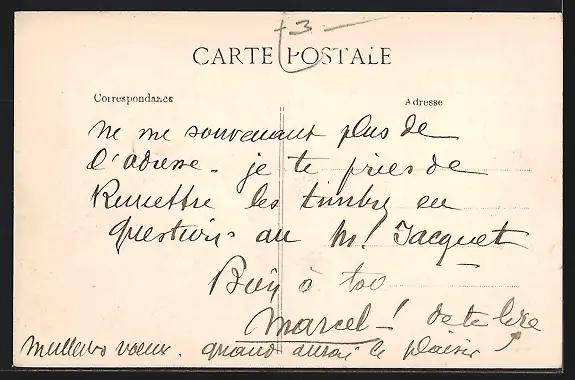 +3 -
CARTE POSTALE
Correspondance
Adresse
ne me souvenant plus de
l'adresse - je te pries de
Remettre les timbres en
questions au M! Jacquet
Bien à toi
Marcel -! de te lire
Meilleurs voeux. quand aurai le plaisir